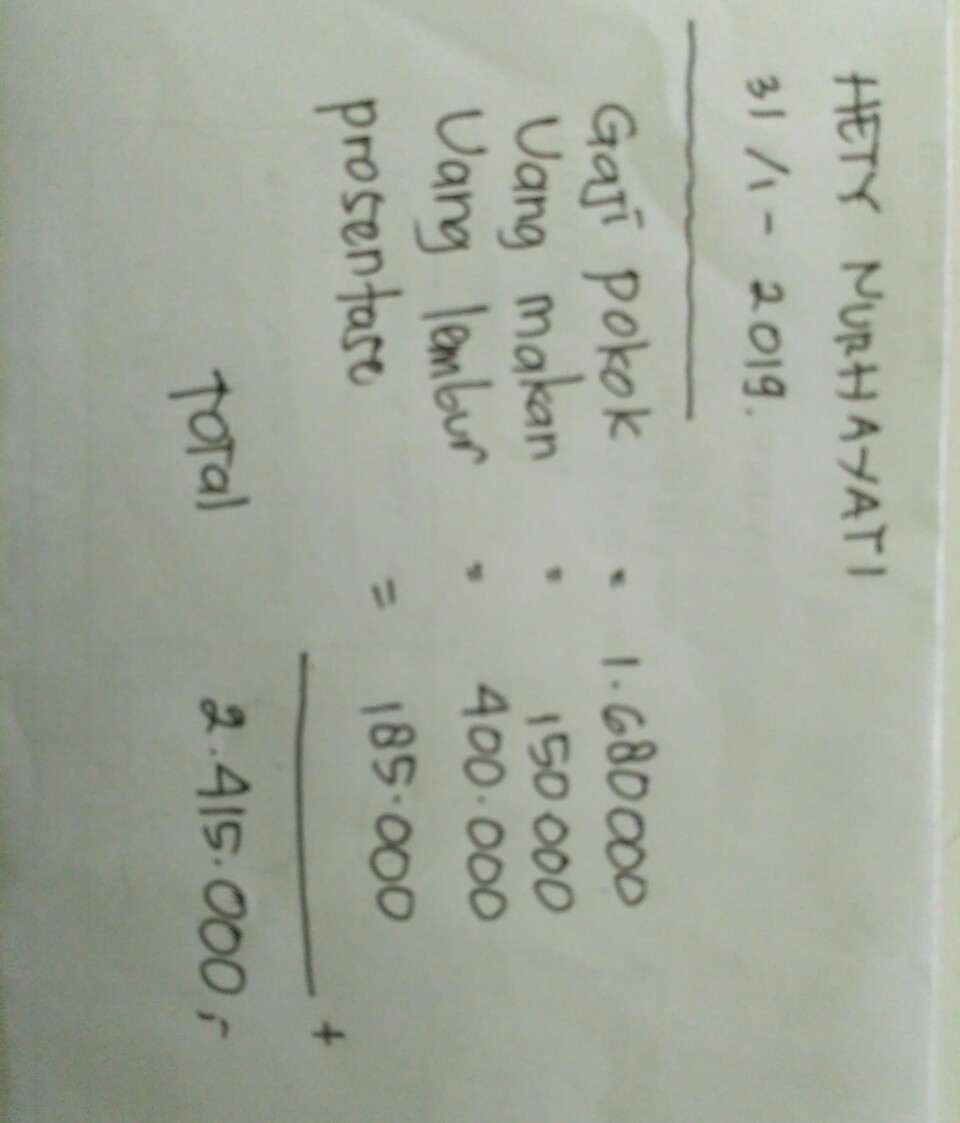 HETY NURHAYATI
31/1-2019.
Gaji pokok = 1.680000
Uang makan = 150.000
Uang lembur = 400.000
prosentase = 185.000
+
Total 2.415.000,-